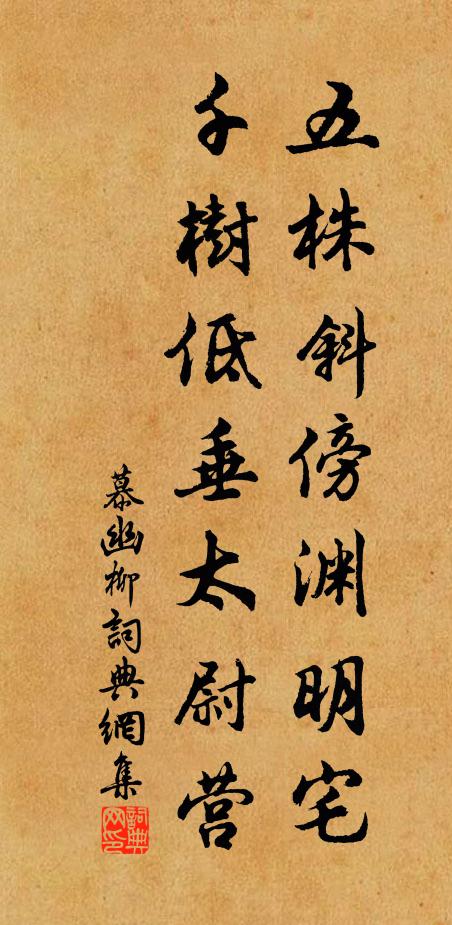 五株斜傍渊明宅
千樹低垂太尉营
慕幽柳詞典網集
詞典网印